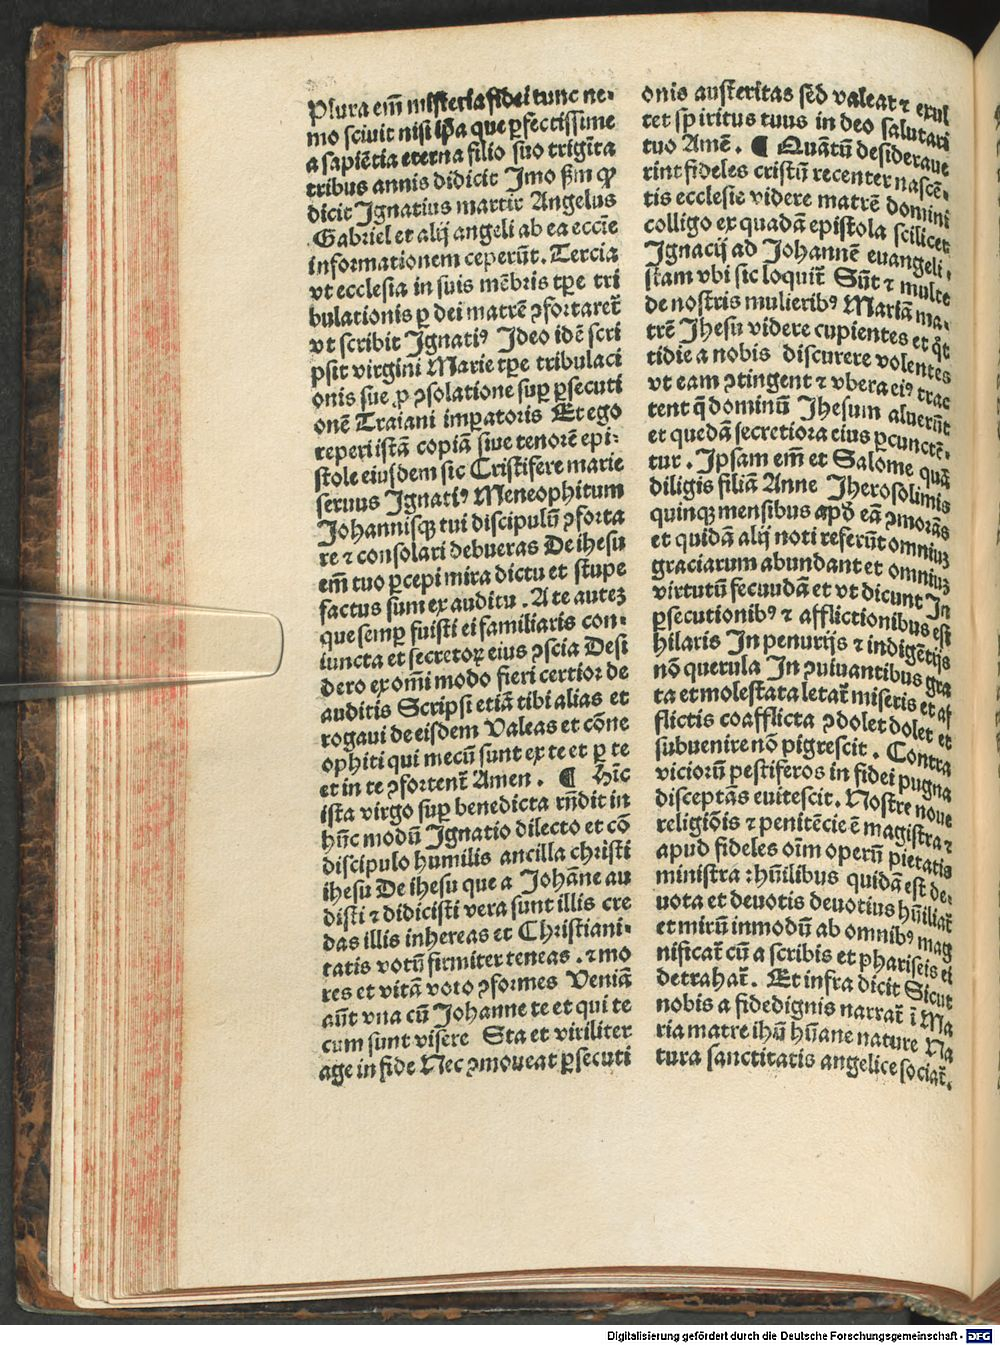 Plura em̄ misteria fidei tunc ne⸗
mo sciuit nisi ip̄a que ꝑfectissime
a sapiētia eterna filio suo trigīta
tribus annis didicit Jmo ẜm ꝙ
dicit Jgnatius martir Angelus
Gabriel et alij angeli ab ea eccīe
informationem ceperūt. Tercia
vt ecclesia in suis mēbris tꝑe tri
bulationis ꝑ dei matrē ꝯfortaret᷑
vt scribit Jgnatiꝰ Jdeo idē scri
psit virgini Marie tꝑe tribulaci
onis sue ꝓ ꝯsolatione suꝑ ꝑsecuti
onē Traiani imꝑatoris Et ego
reperi istā copiā siue tenorē epi⸗
stole eiusdem sic Cristifere marie
seruus Jgnatiꝰ Meneophitum
Johannisqꝫ tui discipulū ꝯforta
re ⁊ consolari debueras De ihesu
em̄ tuo ꝑcepi mira dictu et stupe
factus sum ex auditu . A te auteꝫ
que semꝑ fuisti ei familiaris con⸗
iuncta et secretoꝝ eius ꝯscia Desi
dero ex om̄i modo fieri certior de
auditis Scripsi etiā tibi alias et
rogaui de eisdem Valeas et cōne
ophiti qui mecū sunt ex te et ꝑ te
et in te ꝯfortent᷑ Amen . ¶ Hīc
ista virgo suꝑ benedicta rn̄dit in
hūc modū Jgnatio dilecto et cō
discipulo humilis ancilla christi
ihesu De ihesu que a Johāne au
disti ⁊ didicisti vera sunt illis cre
das illis inhereas et Christiani⸗
tatis votū firmiter teneas . ⁊ mo
res et vitā voto ꝯformes Veniā
aūt vna cū Johanne te et qui te
cum sunt visere Sta et viriliter
age in fide Nec ꝯmoueat ꝑsecuti
onis austeritas sed valeat ⁊ exul
tet spiritus tuus in deo salutari
tuo Amē . ¶ Quātū desideraue
rint fideles cristū recenter nascē⸗
tis ecclesie videre matrē domini
colligo ex quadā epistola scilicet
Jgnacij ad Johannē euangeli⸗
stam vbi sic loquit᷑ Sūt ⁊ multe
de nostris mulieribꝰ Mariā ma⸗
trē Jhesu videre cupientes et q̄t
tidie a nobis discurere volentes
vt eam ꝯtingent ⁊ vbera eiꝰ trac
tent q̄ dominū Jhesum aluerūt
et quedā secretiora eius ꝑcunctē⸗
tur . Jpsam em̄ et Salome quā
diligis filiā Anne Jherosolimis
quinqꝫ mensibus apd̄ eā ꝯmorās
et quidā alij noti referūt omniuꝫ
graciarum abundant et omniuꝫ
virtutū fecundā et vt dicunt Jn
ꝑsecutionibꝰ ⁊ afflictionibus est
hilaris Jn penurijs ⁊ indigētijs
nō querula Jn ꝯuiuantibus gra
ta et molestata letat᷑ miseris et af
flictis coafflicta ꝯdolet dolet et
subuenire nō pigrescit . Contra
viciorū pestiferos in fidei pugna
disceptās euitescit. Nostre noue
religiōis ⁊ penitēcie ē magistra ⁊
apud fideles oīm operū pietatis
ministra : hūilibus quidā est de⸗
uota et deuotis deuotius hūiliat᷑
et mirū inmodū ab omnibꝰ mag
nificat᷑ cū a scribis et phariseis ei
detrahat᷑. Et infra dicit Sicut
nobis a fidedignis narrat᷑ ī Ma
ria matre ihū hūane nature Na
tura sanctitatis angelice sociat᷑.
Digitalisierung gefördert durch die Deutsche Forschungsgemeinschaft - DFG